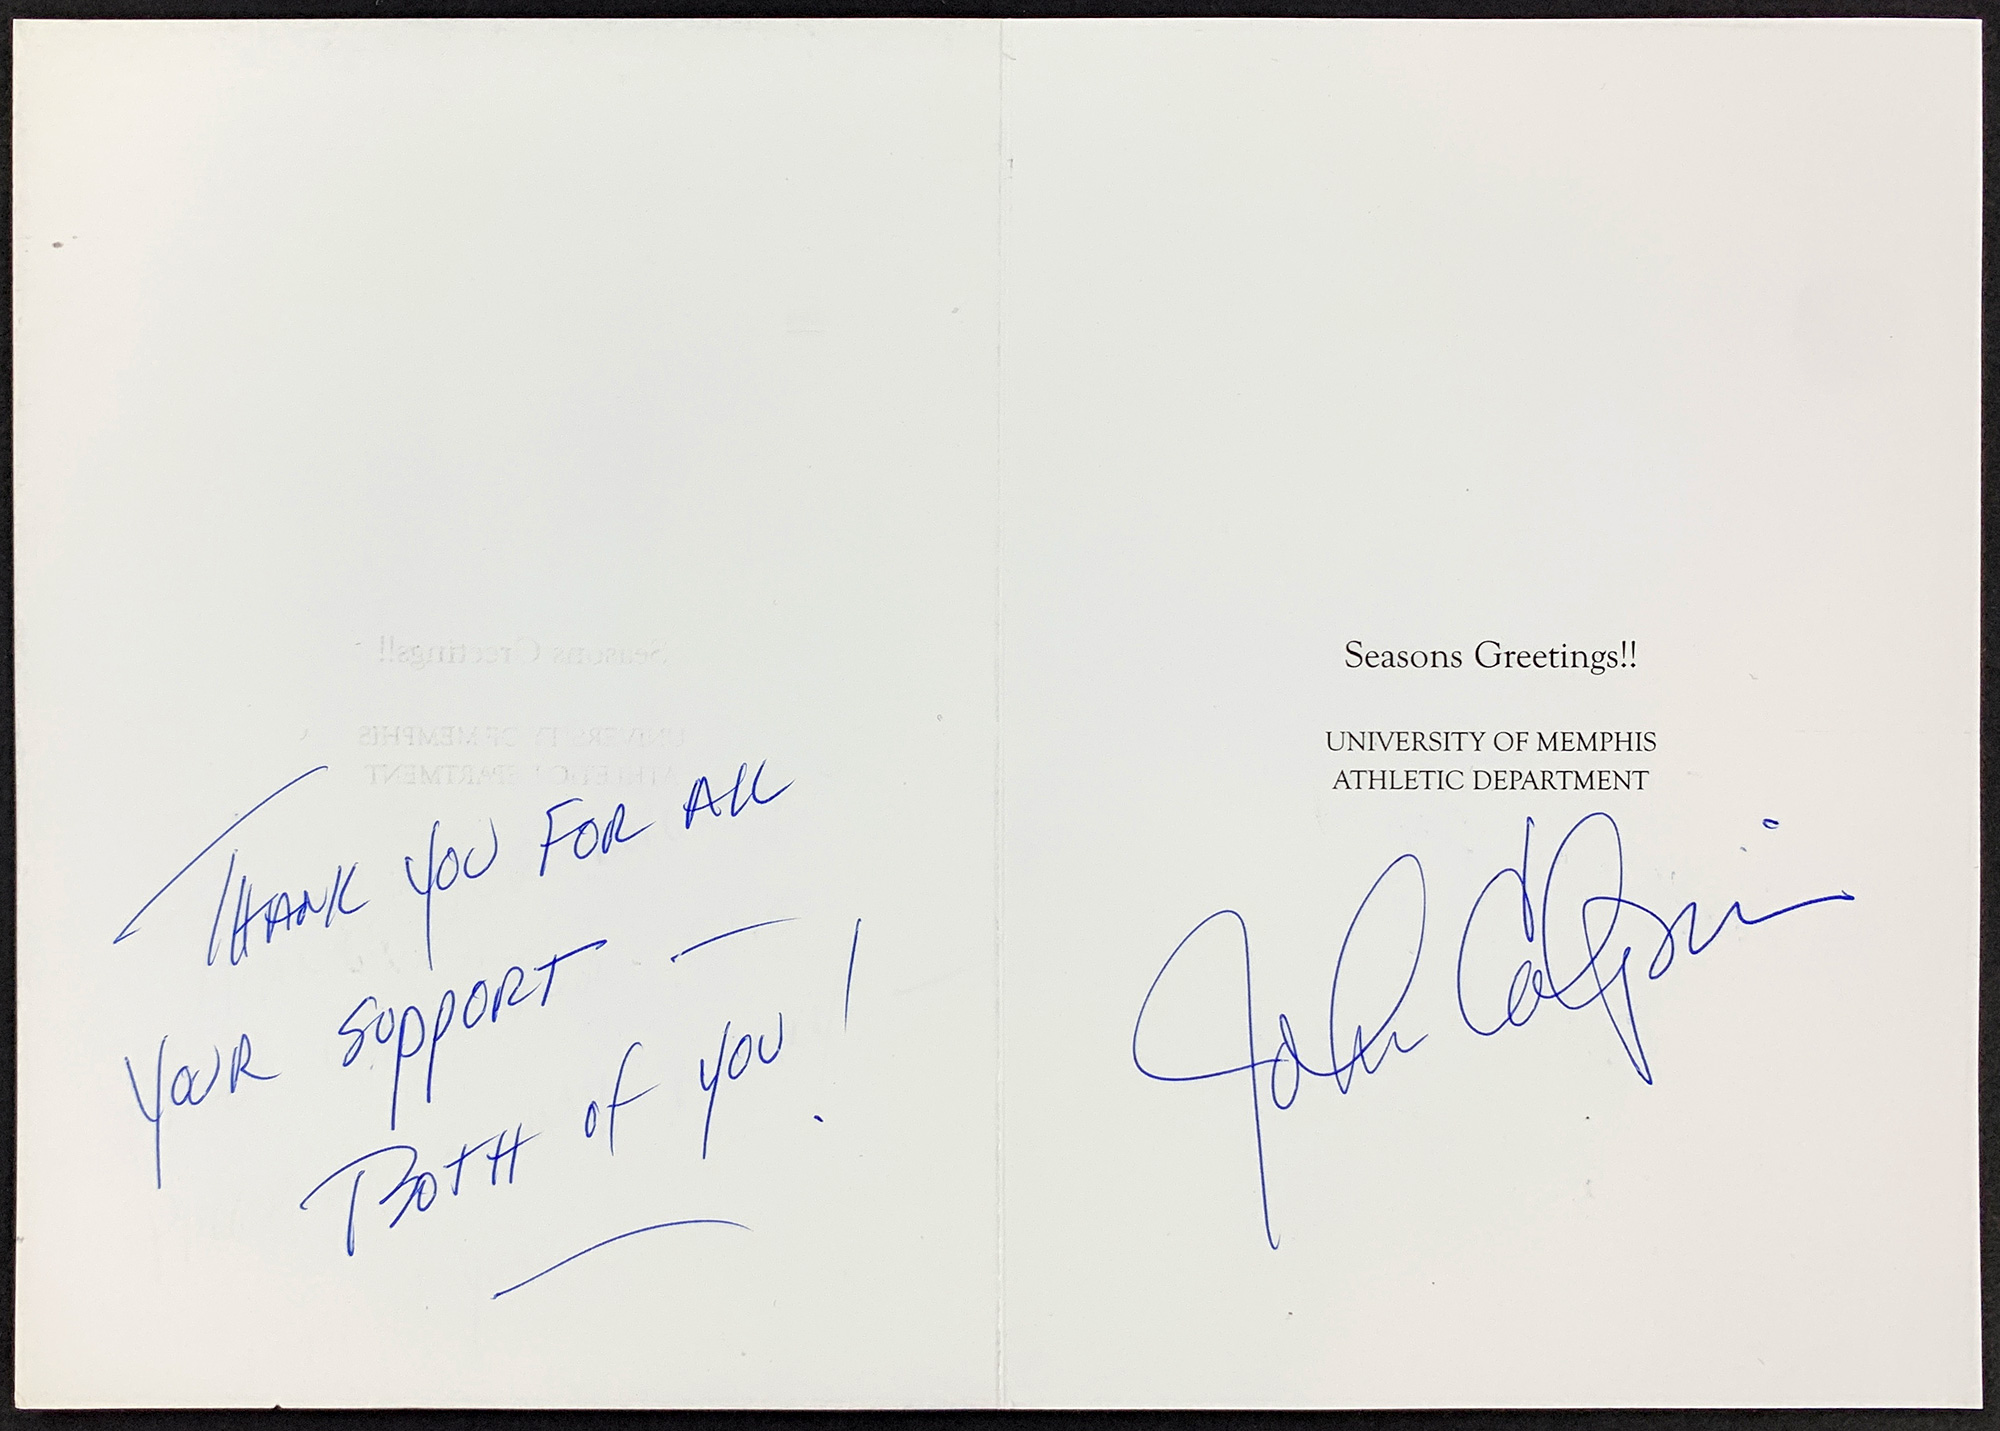 THANK YOU FOR ALL
YOUR SUPPORT —
BOTH OF YOU!
Seasons Greetings!!
UNIVERSITY OF MEMPHIS
ATHLETIC DEPARTMENT
John Calipari